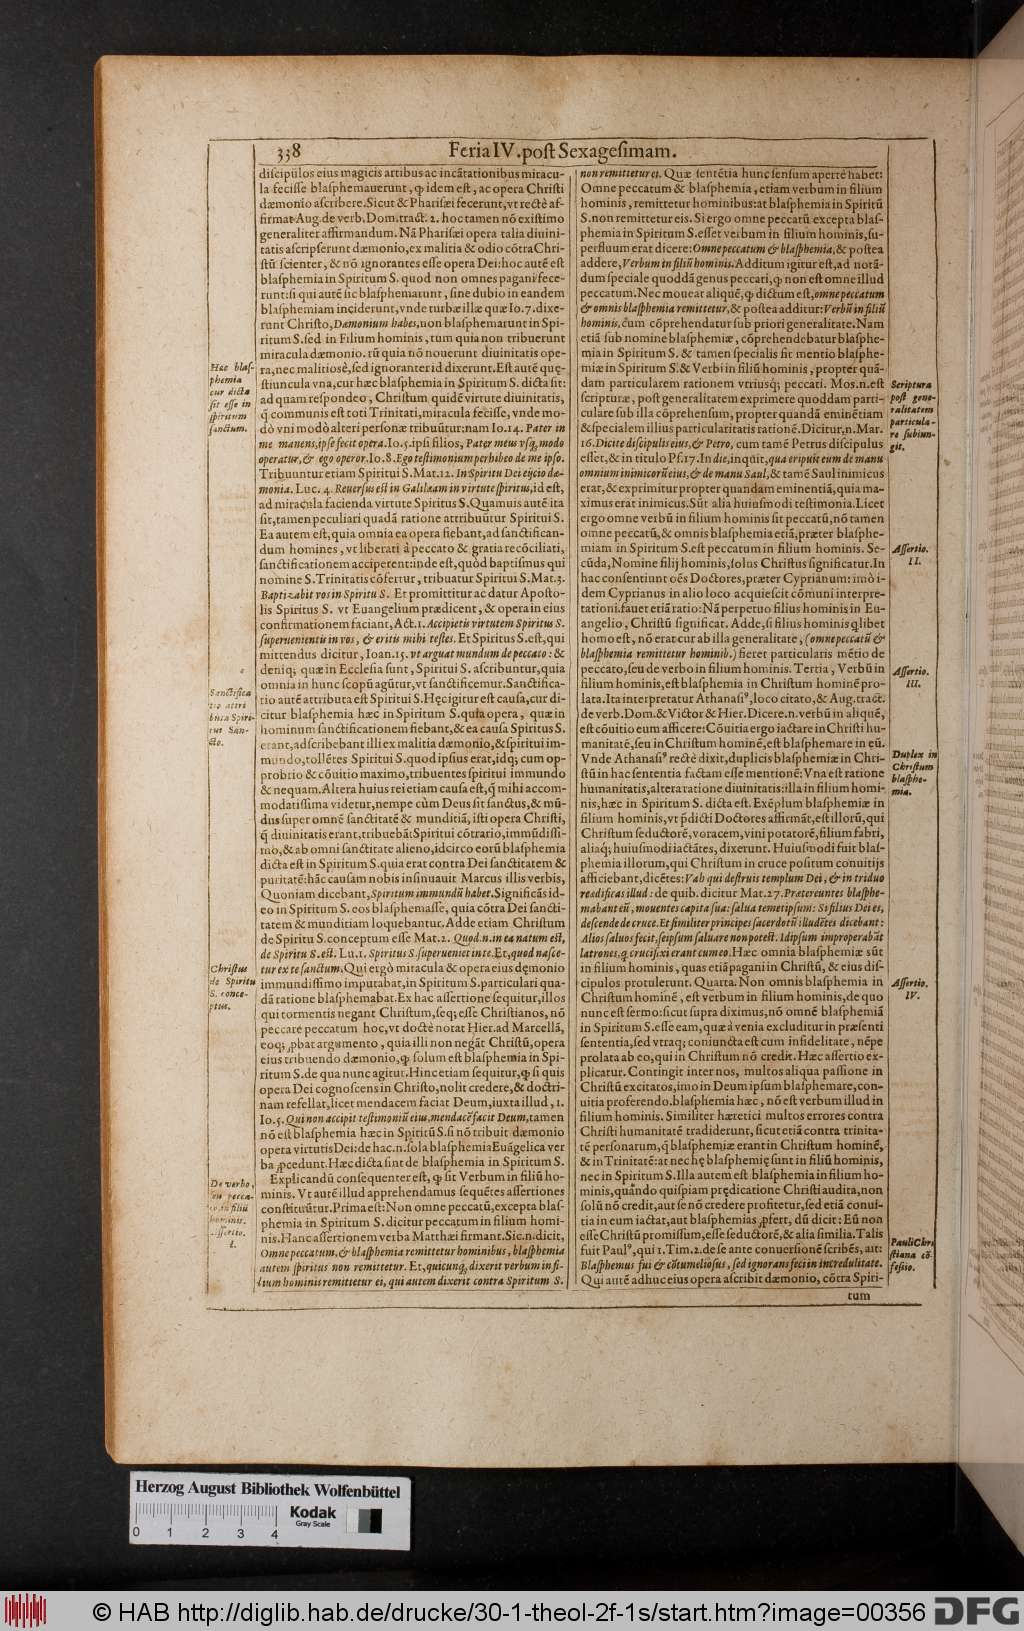 338 Feria IV. post Sexagesimam.
discipulos eius magicis artibus ac incãtationibus miracu-
la fecisse blasphemauerunt, ꝙ idem est, ac opera Christi
dæmonio ascribere. Sicut & Pharisæi fecerunt, vt rectè af-
firmat Aug. de verb. Dom. tract. 2. hoc tamen nõ existimo
generaliter affirmandum. Nã Pharisæi opera talia diuini-
tatis ascripserunt dæmonio, ex malitia & odio cõtra Chri-
stũ scienter, & nõ ignorantes esse opera Dei: hoc autẽ est
blasphemia in Spiritum S. quod non omnes pagani fece-
runt: si qui autẽ sic blasphemarunt, sine dubio in eandem
blasphemiam inciderunt, vnde turbæ illæ quæ Io. 7. dixe-
runt Christo, Dæmonium habes, non blasphemarunt in Spi-
ritum S. sed in Filium hominis, tum quia non tribuerunt
miracula dæmonio. tũ quia nõ nouerunt diuinitatis ope-
ra, nec malitiosè, sed ignoranter id dixerunt. Est autẽ quę-
stiuncula vna, cur hæc blasphemia in Spiritum S. dicta sit:
ad quam respondeo, Christum quidẽ virtute diuinitatis,
q̃ communis est toti Trinitati, miracula fecisse, vnde mo-
dò vni modò alteri personæ tribuũtur: nam Io. 14. Pater in
me manens, ipse fecit opera. Io. 5. ipsi filios, Pater meus vsq́, modo
operatur, & ego operor. Io. 8. Ego testimonium perhibeo de me ipso.
Tribuuntur etiam Spiritui S. Mat. 12. In Spiritu Dei eijcio dæ-
monia. Luc. 4. Reuersus est in Galilæam in virtute spiritus, id est,
ad miracula facienda virtute Spiritus S. Quamuis autẽ ita
sit, tamen peculiari quadã ratione attribuũtur Spiritui S.
Ea autem est, quia omnia ea opera fiebant, ad sanctifican-
dum homines, vt liberati à peccato & gratia recõciliati,
sanctificationem acciperent: inde est, quòd baptismus qui
nomine S. Trinitatis cõfertur, tribuatur Spiritui S. Mat. 3.
Baptizabit vos in Spiritu S. Et promittitur ac datur Aposto-
lis Spiritus S. vt Euangelium prædicent, & opera in eius
confirmationem faciant, Act. 1. Accipietis virtutem Spiritus S.
superuenientis in vos, & eritis mihi testes. Et Spiritus S. est, qui
mittendus dicitur, Ioan. 15. vt arguat mundum de peccato: &
deniq; quæ in Ecclesia sunt, Spiritui S. ascribuntur, quia
omnia in hunc scopũ agũtur, vt sanctificemur. Sanctifica-
tio autẽ attributa est Spiritui S. Hęc igitur est causa, cur di-
citur blasphemia hæc in Spiritum S. quia opera, quæ in
hominum sanctificationem fiebant, & ea causa Spiritus S.
erant, adscribebant illi ex malitia dæmonio, & spiritui im-
mundo, tollẽtes Spiritui S. quod ipsius erat, idq; cum op-
probrio & cõuitio maximo, tribuentes spiritui immundo
& nequam. Altera huius rei etiam causa est, q̃ mihi accom-
modatissima videtur, nempe cùm Deus sit sanctus, & mũ-
dus super omnẽ sanctitatẽ & munditiã, isti opera Christi,
q̃ diuinitatis erant, tribuebãt Spiritui cõtrario, immũdissi-
mo, & ab omni sanctitate alieno, idcirco eorũ blasphemia
dicta est in Spiritum S. quia erat contra Dei sanctitatem &
puritatẽ: hãc causam nobis insinuauit Marcus illis verbis,
Quoniam dicebant, Spiritum immundũ habet. Significãs id-
eo in Spiritum S. eos blasphemasse, quia cõtra Dei sancti-
tatem & munditiam loquebantur. Adde etiam Christum
de Spiritu S. conceptum esse Mat. 2. Quod .n. in ea natum est,
de Spiritu S. est. Lu. 1. Spiritus S. superueniet in te. Et, quod nasce-
tur ex te sanctum. Qui ergò miracula & opera eius dęmonio
immundissimo imputabat, in Spiritum S. particulari qua-
dã ratione blasphemabat. Ex hac assertione sequitur, illos
qui tormentis negant Christum, seq; esse Christianos, nõ
peccare peccatum hoc, vt doctè notat Hier. ad Marcellã,
eoq; ꝓbat argumento, quia illi non negãt Christũ, opera
eius tribuendo dæmonio, ꝙ solum est blasphemia in Spi-
ritum S. de qua nunc agitur. Hinc etiam sequitur, ꝙ si quis
opera Dei cognoscens in Christo, nolit credere, & doctri-
nam refellat, licet mendacem faciat Deum, iuxta illud, 1.
Io. 5. Qui non accipit testimoniũ eius, mendacẽ facit Deum, tamen
nõ est blasphemia hæc in Spiritũ S. si nõ tribuit dæmonio
opera virtutis Dei: de hac .n. sola blasphemia Euãgelica ver
ba ꝓcedunt. Hæc dicta sint de blasphemia in Spiritum S.
Explicandũ consequenter est, ꝙ sit Verbum in filiũ ho-
minis. Vt autẽ illud apprehendamus sequẽtes assertiones
constituũtur. Prima est: Non omne peccatũ, excepta blas-
phemia in Spiritum S. dicitur peccatum in filium homi-
nis. Hanc assertionem verba Matthæi firmant. Sic .n. dicit,
Omne peccatum, & blasphemia remittetur hominibus, blasphemia
autem spiritus non remittetur. Et, quicunq́, dixerit verbum in fi-
lium hominis remittetur ei, qui autem dixerit contra Spiritum S.
Hæc blas-
phemia
cur dicta
sit esse in
spiritum
sanctum.
Sanctifica
tio attri
buta Spiri-
tui San-
cto.
Christus
de Spiritu
S. conce-
ptus.
De verbo,
seu pecca-
to in filiũ
hominis.
Assertio.
I.
non remittetur ei. Quæ sentẽtia hunc sensum apertè habet:
Omne peccatum & blasphemia, etiam verbum in filium
hominis, remittetur hominibus: at blasphemia in Spiritũ
S. non remittetur eis. Si ergo omne peccatũ excepta blas-
phemia in Spiritum S. esset verbum in filium hominis, su-
perfluum erat dicere: Omne peccatum & blasphemia, & postea
addere, Verbum in filiũ hominis. Additum igitur est, ad notã-
dum speciale quoddã genus peccati, ꝙ non est omne illud
peccatum. Nec moueat aliquẽ, ꝙ dictum est, omne peccatum
& omnis blasphemia remittetur, & postea additur: Verbũ in filiũ
hominis, cum cõprehendatur sub priori generalitate. Nam
etiã sub nomine blasphemiæ, cõprehendebatur blasphe-
mia in Spiritum S. & tamen specialis fit mentio blasphe-
miæ in Spiritum S. & Verbi in filiũ hominis, propter quã-
dam particularem rationem vtriusq; peccati. Mos .n. est
scripturæ, post generalitatem exprimere quoddam parti-
culare sub illa cõprehensum, propter quandã eminẽtiam
& specialem illius particularitatis rationẽ. Dicitur, n. Mar.
16. Dicite discipulis eius, & Petro, cum tamẽ Petrus discipulus
esset, & in titulo Ps. 17. In die, inquit, qua eripuit eum de manu
omnium inimicorũ eius, & de manu Saul, & tamẽ Saul inimicus
erat, & exprimitur propter quandam eminentiã, quia ma-
ximus erat inimicus. Sũt alia huiusmodi testimonia. Licet
ergo omne verbũ in filium hominis sit peccatũ, nõ tamen
omne peccatũ, & omnis blasphemia etiã, præter blasphe-
miam in Spiritum S. est peccatum in filium hominis. Se-
cũda, Nomine filij hominis, solus Christus significatur. In
hac consentiunt oẽs Doctores, præter Cyprianum: imò i-
dem Cyprianus in alio loco acquiescit cõmuni interpre-
tationi. fauet etiã ratio: Nã perpetuo filius hominis in Eu-
angelio, Christũ significat. Adde, si filius hominis q̃libet
homo est, nõ erat cur ab illa generalitate, (omne peccatũ &
blasphemia remittetur hominib.) fieret particularis mẽtio de
peccato, seu de verbo in filium hominis. Tertia, Verbũ in
filium hominis, est blasphemia in Christum hominẽ pro-
lata. Ita interpretatur Athanasiꝰ, loco citato, & Aug. tract.
de verb. Dom. & Victor & Hier. Dicere .n. verbũ in aliquẽ,
est cõuitio eum afficere: Cõuitia ergo iactare in Christi hu-
manitatẽ, seu in Christum hominẽ, est blasphemare in eũ.
Vnde Athanasiꝰ rectè dixit, duplicis blasphemiæ in Chri-
stũ in hac sententia factam esse mentionẽ: Vna est ratione
humanitatis, altera ratione diuinitatis: illa in filium homi-
nis, hæc in Spiritum S. dicta est. Exẽplum blasphemiæ in
filium hominis, vt p̃dicti Doctores affirmãt, est illorũ, qui
Christum seductorẽ, voracem, vini potatorẽ, filium fabri,
aliaq; huiusmodi iactãtes, dixerunt. Huiusmodi fuit blas-
phemia illorum, qui Christum in cruce positum conuitijs
afficiebant, dicẽtes: Vah qui destruis templum Dei, & in triduo
reædificas illud: de quib. dicitur Mat. 27. Prætereuntes blasphe-
mabant eũ, mouentes capita sua: salua temetipsum: Si filius Dei es,
descende de cruce. Et similiter principes sacerdotũ illudẽtes dicebant:
Alios saluos fecit, seipsum saluare non potest. Idipsum improperabãt
latrones, q̃ crucifixi erant cum eo. Hæc omnia blasphemiæ sũt
in filium hominis, quas etiã pagani in Christũ, & eius dis-
cipulos protulerunt. Quarta. Non omnis blasphemia in
Christum hominẽ, est verbum in filium hominis, de quo
nunc est sermo: sicut supra diximus, nõ omnẽ blasphemiã
in Spiritum S. esse eam, quæ à venia excluditur in præsenti
sententia, sed vtraq; coniuncta est cum infidelitate, nẽpe
prolata ab eo, qui in Christum nõ credit. Hæc assertio ex-
plicatur. Contingit inter nos, multos aliqua passione in
Christũ excitatos, imo in Deum ipsum blasphemare, con-
uitia proferendo. blasphemia hæc, nõ est verbum illud in
filium hominis. Similiter hæretici multos errores contra
Christi humanitatẽ tradiderunt, sicut etiã contra trinita-
tẽ personarum, q̃ blasphemiæ erant in Christum hominẽ,
& in Trinitatẽ: at nec hę blasphemię sunt in filiũ hominis,
nec in Spiritum S. Illa autem est blasphemia in filium ho-
minis, quãndo quispiam prędicatione Christi audita, non
solũ nõ credit, aut se nõ credere profitetur, sed etiã conui-
tia in eum iactat, aut blasphemias ꝓfert, dũ dicit: Eũ non
esse Christũ promissum, esse seductorẽ, & alia similia. Talis
fuit Paulꝰ, qui 1. Tim. 2. de se ante conuersionẽ scribẽs, ait:
Blasphemus fui & cõtumeliosus, sed ignorans feci in incredulitate.
Qui autẽ adhuc eius opera ascribit dæmonio, cõtra Spiri-
tum
Scriptura
post gene-
ralitatem
particula-
re subiun-
git.
Assertio.
II.
Assertio.
III.
Duplex in
Christum
blasphe-
mia.
Assertio.
IV.
Pauli Chri
stiana cõ-
fessio.
Herzog August Bibliothek Wolfenbüttel
Kodak
Gray Scale
0 1 2 3 4
© HAB http://diglib.hab.de/drucke/30-1-theol-2f-1s/start.htm?image=00356
DFG